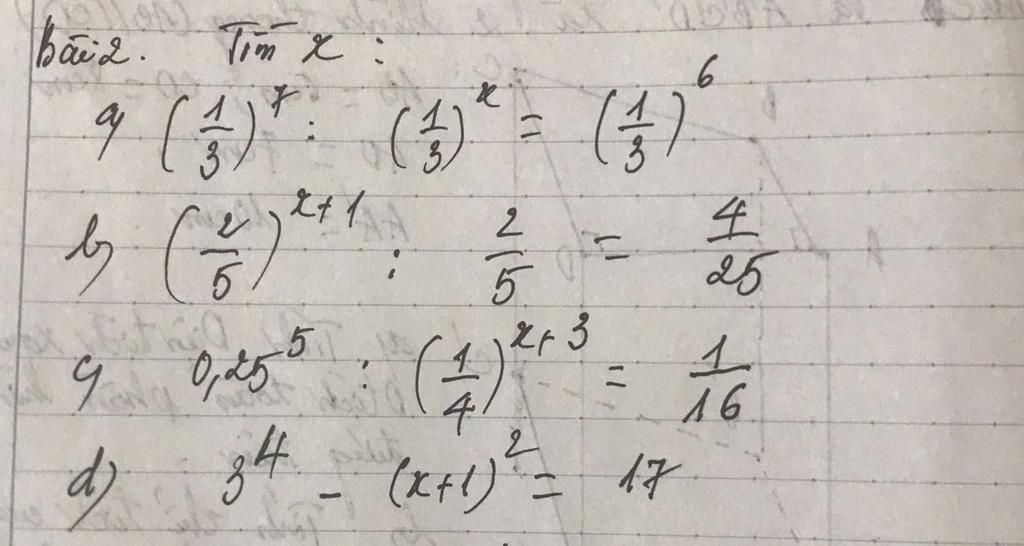 Bài 2. Tìm x :
a) (1/3)^7 : (1/3)^x = (1/3)^6
b) (2/5)^{x+1} : 2/5 = 4/25
c) 0,25^5 : (1/4)^{x+3} = 1/16
d) 3^4 - (x+1)^2 = 17